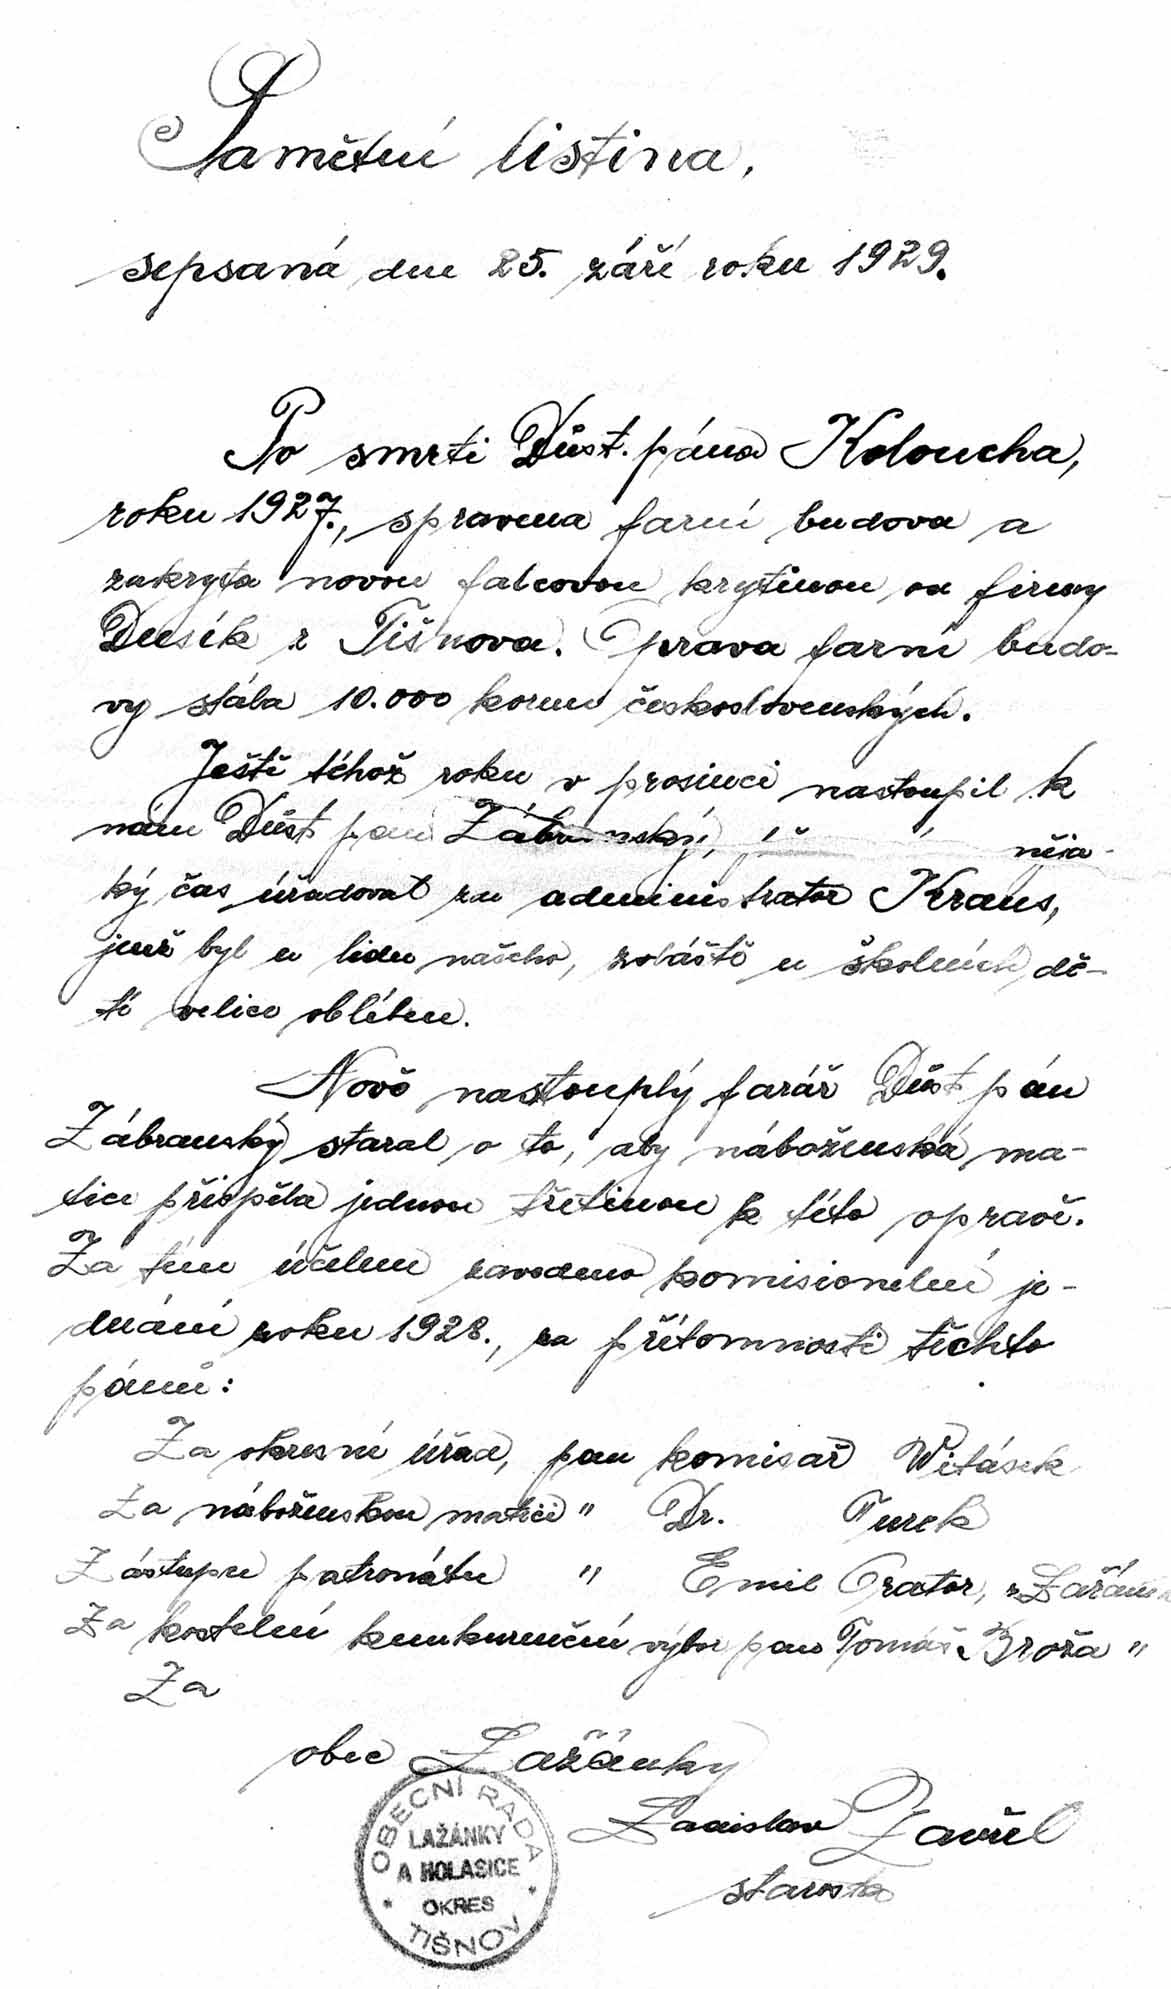 Pamětní listina,
sepsaná dne 25. září roku 1929.
Po smrti Důst. pána Koloucha,
roku 1927., spravena farní budova a
zakryta novou falcovou krytinou od firmy
Dusík z Tišnova. Oprava farní budo-
vy stála 10.000 korun československých.
Ještě téhož roku v prosinci nastoupil k
nám Důst pan Zábranský, něja-
ký čas úřadoval zde administrator Kraus,
jenž byl u lidu našeho, zvláště u školních dě-
tí velice oblíben.
Nově nastouplý farář Důst pán
Zábranský staral o to, aby náboženská ma-
tice přispěla jednou třetinou k této opravě.
Za tím účelem zavedeno komisionelní je-
dnání roku 1928., za přítomnosti těchto
pánů:
Za okresní úřad, pan komisař Witásek
Za náboženskou matici " Dr. Turek
Zástupce patronátu " Emil Orator, z Lažánek
Za kostelní konkurenční výbor pan Tomáš Broža "
Za
obec Lažánky
Ladislav Zavřel
starosta
OBECNÍ RADA
LAŽÁNKY
A HOLASICE
OKRES
TIŠNOV